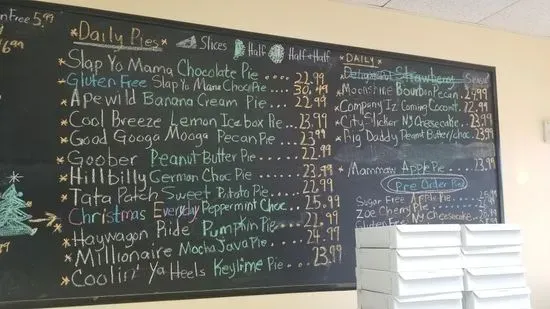 Free 5.99
6.99
*Daily Pies* Slices Half Half + Half
*Slap Yo Mama Chocolate Pie .. 22.99
*Gluten Free Slap Yo Mama Choc Pie... 30.49
*Apewild Banana Cream Pie ... 22.99
*Cool Breeze Lemon Ice box Pie ... 23.99
*Good Googa Mooga Pecan Pie .... 23.99
*Goober Peanut Butter Pie .... 22.99
*Hillbilly German Choc Pie .... 23.99
*Tata Patch Sweet Potato Pie .... 22.99
*Christmas Everyday Peppermint Choc... 25.99
*Haywagon Ride Pumpkin Pie ..... 21.99
*Millionaire Mocha Java Pie .... 24.99
*Coolin' Ya Heels Keylime Pie .... 23.99
*DAILY*
Strawberry
*Moonshine Bourbon Pecan. 24.99
*Company Iz Coming Coconut. 22.99
*City-Slicker NY Cheesecake.. 23.99
*Big Daddy Peanut Butter/choc. 23.99
*Mammaw Apple Pie ..... 23.99
Pre Order Pies
Sugar Free Apple Pie
Zoe Cherry Pie
NY Cheesecake